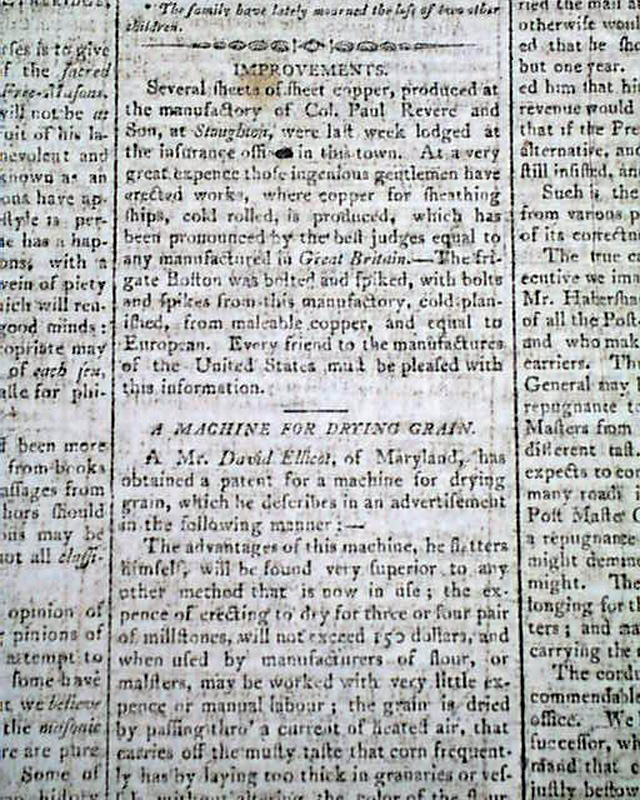 * The family have lately mourned the loss of two other
children.
IMPROVEMENTS.
Several ſheets of ſheet copper, produced at
the manufactory of Col. Paul Revere and
Son, at Stoughton, were laſt week lodged at
the inſurance offi in this town. At a very
great expence thoſe ingenious gentlemen have
erected works, where copper for ſheathing
ſhips, cold rolled, is produced, which has
been pronounced by the beſt judges equal to
any manufactured in Great Britain.—The fri-
gate Boſton was bolted and ſpiked, with bolts
and ſpikes from this manufactory, cold plan-
iſhed, from maleable copper, and equal to
European. Every friend to the manufactures
of the United States muſt be pleaſed with
this information.
A MACHINE FOR DRYING GRAIN.
A Mr. David Ellicot, of Maryland, has
obtained a patent for a machine for drying
grain, which he deſcribes in an advertiſement
in the following manner:—
The advantages of this machine, he flatters
himſelf, will be found very ſuperior to any
other method that is now in uſe; the ex-
pence of erecting to dry for three or four pair
of millſtones, will not exceed 150 dollars, and
when uſed by manufacturers of flour, or
malſters, may be worked with very little ex-
pence or manual labour; the grain is dried
by paſſing thro' a current of heated air, that
carries off the muſty taſte that corn frequent-
ly has by laying too thick in granaries or veſ-
without altering the color of the flour
rſes is to give
f the ſacred
Free-Maſons.
will not be at
uit of his la-
nevolent and
known as an
ons have ap-
ſtyle is per-
he has a hap-
ons; with a
vein of piety
hich will ren-
good minds:
opriate may
of each ſex,
aſte for phi-
d been more
from books
aſſages from
hors ſhould
ons may be
not all claſſi-
opinion of
pinions of
attempt to
ſome have
ut we believe
the maſonic
re are pure
Some of
otherwiſe wou
ed that he ſho
but one year.
ed him that hi
revenue would
that if the Pre
alternative, and
ſtill inſiſted, an
Such is the
from various p
of its correctn
The true c
ecutive we im
Mr. Haberſha
of all the Poſt
and who mak
carriers. Th
General may
repugnance t
Maſters from
different taſt.
expects to con
many roads
Poſt Maſter G
a repugnance
might demin
might. The
longing for t
ters; and ma
carrying the
The cordu
commendabl
office. We
ſucceſſor, wh
rſtand that c
juſtly beſtow